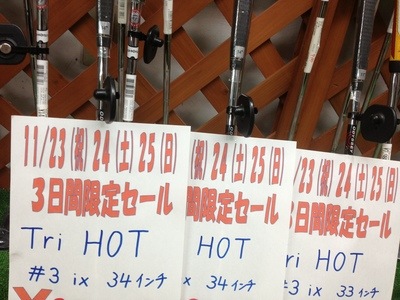 11/23(祝)24(土)25(日)
3日間限定セール
Tri HOT
#3 ix 34インチ
(祝)24(土)25(日)
限定セール
HOT
x 34インチ
/23(祝)24(土)25(日)
3日間限定セール
ri HOT
3 ix 33インチ